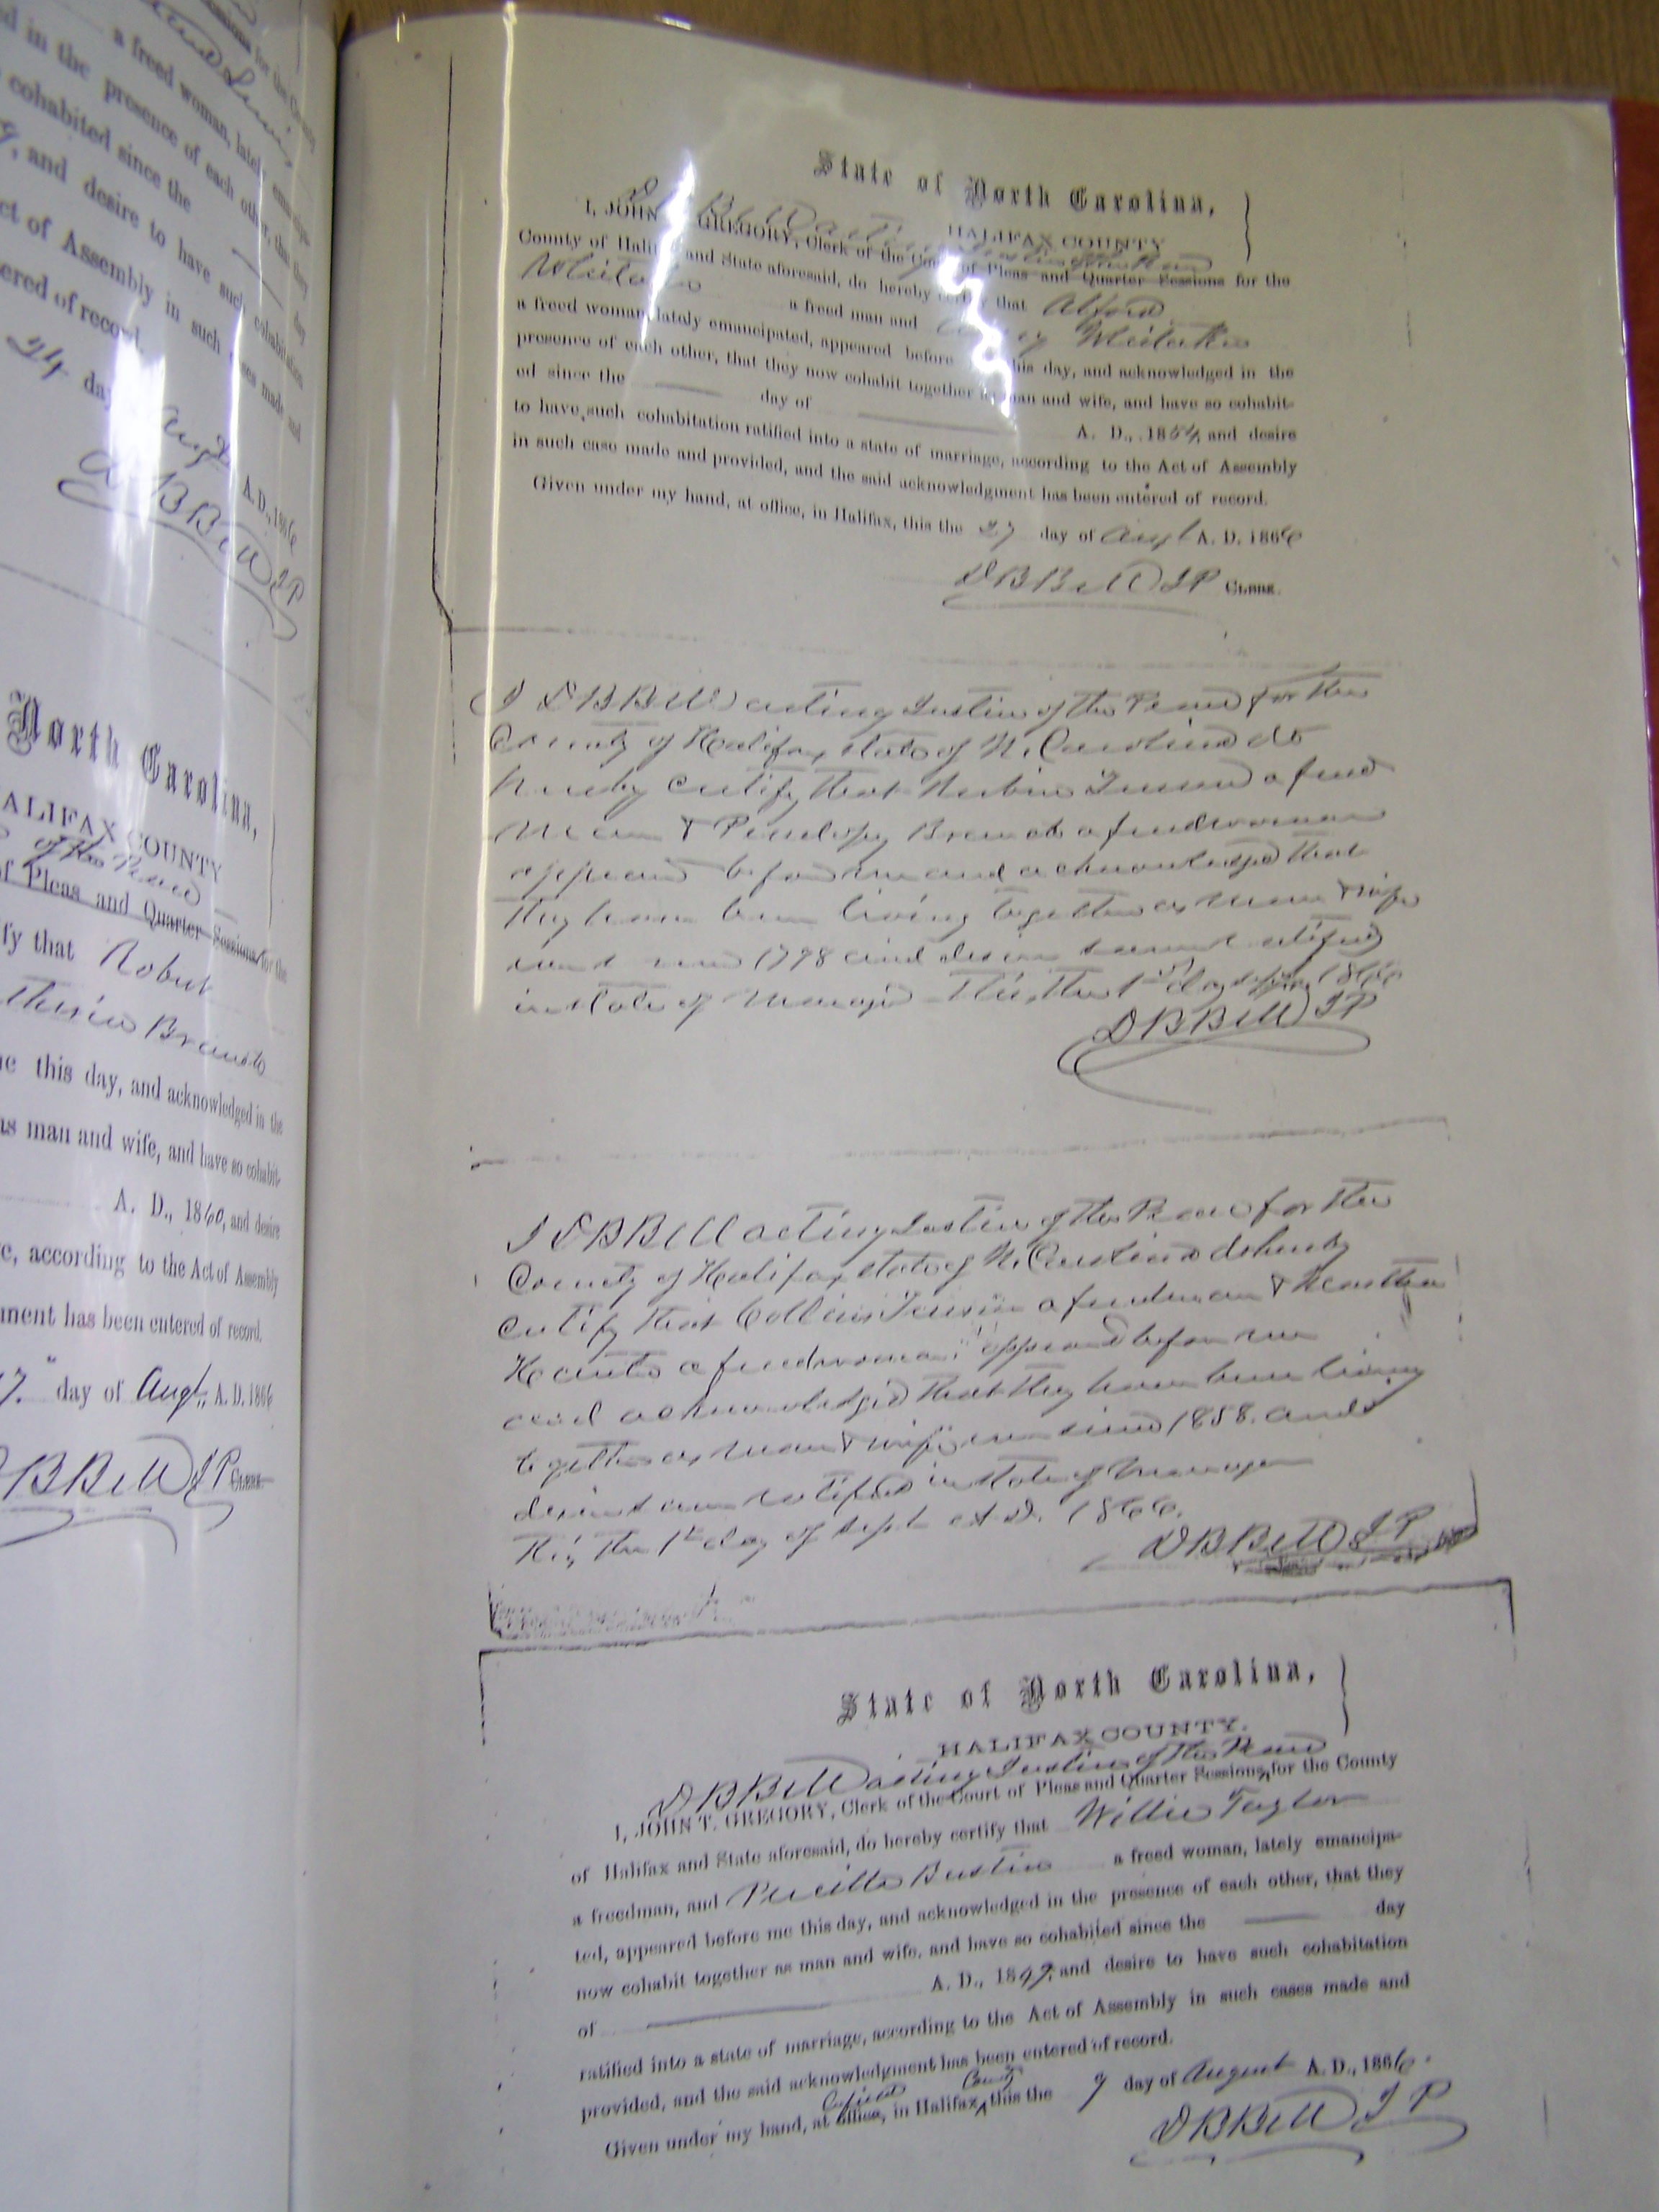 a freed woman, lately eman
d in the presence of each other, that they
cohabited since the day
9, and desire to have such cohabitation
ct of Assembly in such ses made and
ered of record.
24 day Augt A. D., 1866
D B Bell J P
North Carolina,
ALIFAX COUNTY
of the Peace
of Pleas and Quarter Sessions for the
fy that Robert
Brantly
ne this day, and acknowledged in the
as man and wife, and have so cohabit-
A. D., 1860, and desire
e, according to the Act of Assembly
ment has been entered of record.
7" day of Augt., A. D. 1866
D B Bell J P Clerk.
State of North Carolina,
HALIFAX COUNTY
D B Bell acting Justice of the Peace
I, JOHN GREGORY, Clerk of the Court of Pleas and Quarter Sessions for the
County of Halifax and State aforesaid, do hereby certify that Alford
Whitaker a freed man and Whitaker
a freed woman lately emancipated, appeared before this day, and acknowledged in the
presence of each other, that they now cohabit together as man and wife, and have so cohabit-
ed since the day of A. D., 1854, and desire
to have such cohabitation ratified into a state of marriage, according to the Act of Assembly
in such case made and provided, and the said acknowledgment has been entered of record.
Given under my hand, at office, in Halifax, this the 27 day of Augt A. D. 1866
D B Bell J P Clerk.
I D B Bell acting Justice of the Peace for the
County of Halifax, state of N. Carolina do
hereby certify that a freed
man & Penelopy a freedwoman
appeared before me and acknowledged that
they have been living together as man & wife
since 1778 and desire same ratified
in state of marriage This, the 1st day 1866
D B Bell J P
I D B Bell acting Justice of the Peace for the
County of Halifax, state of N. Carolina do hereby
certify that Collins a freedman & Martha
a freedwoman appeared before me
and acknowledged that they have been living
together as man & wife ever since 1858. and
desire same ratified in state of marriage
This, the 1st day of Sept A. D. 1866.
D B Bell J P
State of North Carolina,
HALIFAX COUNTY.
D B Bell acting Justice of the Peace
I, JOHN T. GREGORY, Clerk of the Court of Pleas and Quarter Sessions, for the County
of Halifax and State aforesaid, do hereby certify that Willie Taylor
a freedman, and a freed woman, lately emancipa-
ted, appeared before me this day, and acknowledged in the presence of each other, that they
now cohabit together as man and wife, and have so cohabited since the day
of A. D., 1849, and desire to have such cohabitation
ratified into a state of marriage, according to the Act of Assembly in such cases made and
provided, and the said acknowledgment has been entered of record.
Enfield County
Given under my hand, at office, in Halifax, this the 9 day of August A. D., 1866.
D B Bell J P